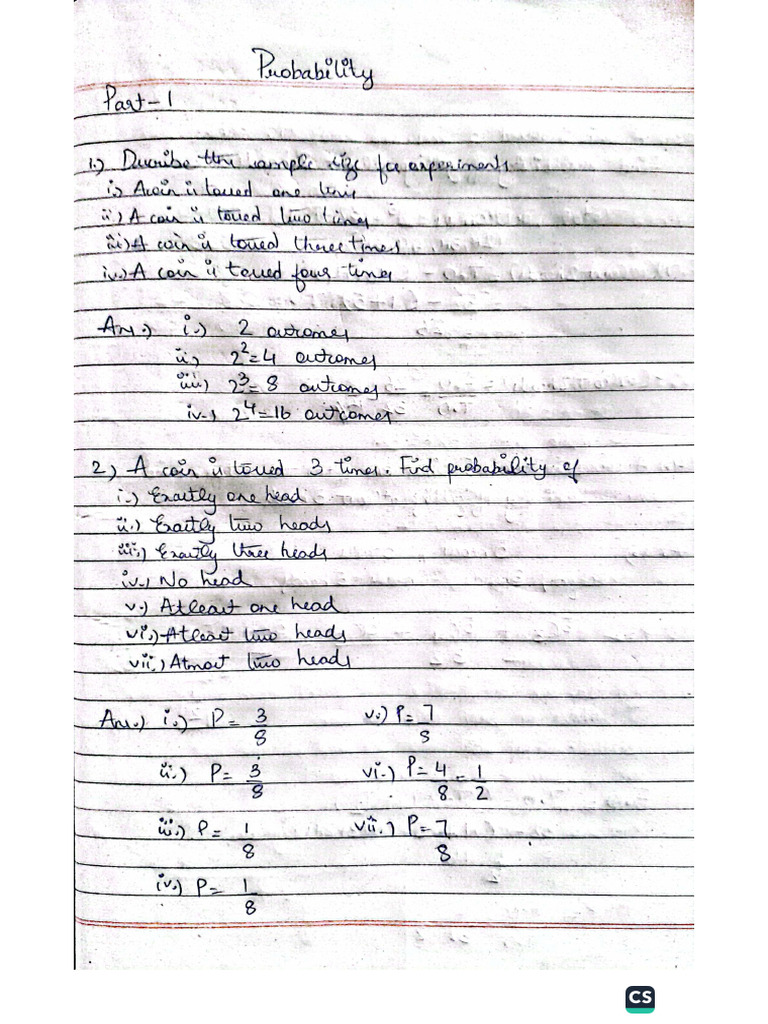 Probability
Part-1
1.) Describe the sample size for experiments
i.) A coin is tossed one time
ii.) A coin is tossed two times
iii.) A coin is tossed three times
iv.) A coin is tossed four times
Ans.) i.) 2 outcomes
ii.) 2²=4 outcomes
iii.) 2³=8 outcomes
iv.) 2⁴=16 outcomes
2.) A coin is tossed 3 times. Find probability of
i.) Exactly one head
ii.) Exactly two heads
iii.) Exactly three heads
iv.) No head
v.) Atleast one head
vi.) Atleast two heads
vii.) Atmost two heads
Ans.) i.) P= 3/8 v.) P= 7/8
ii.) P= 3/8 vi.) P= 4/8 = 1/2
iii.) P= 1/8 vii.) P= 7/8
iv.) P= 1/8
CS